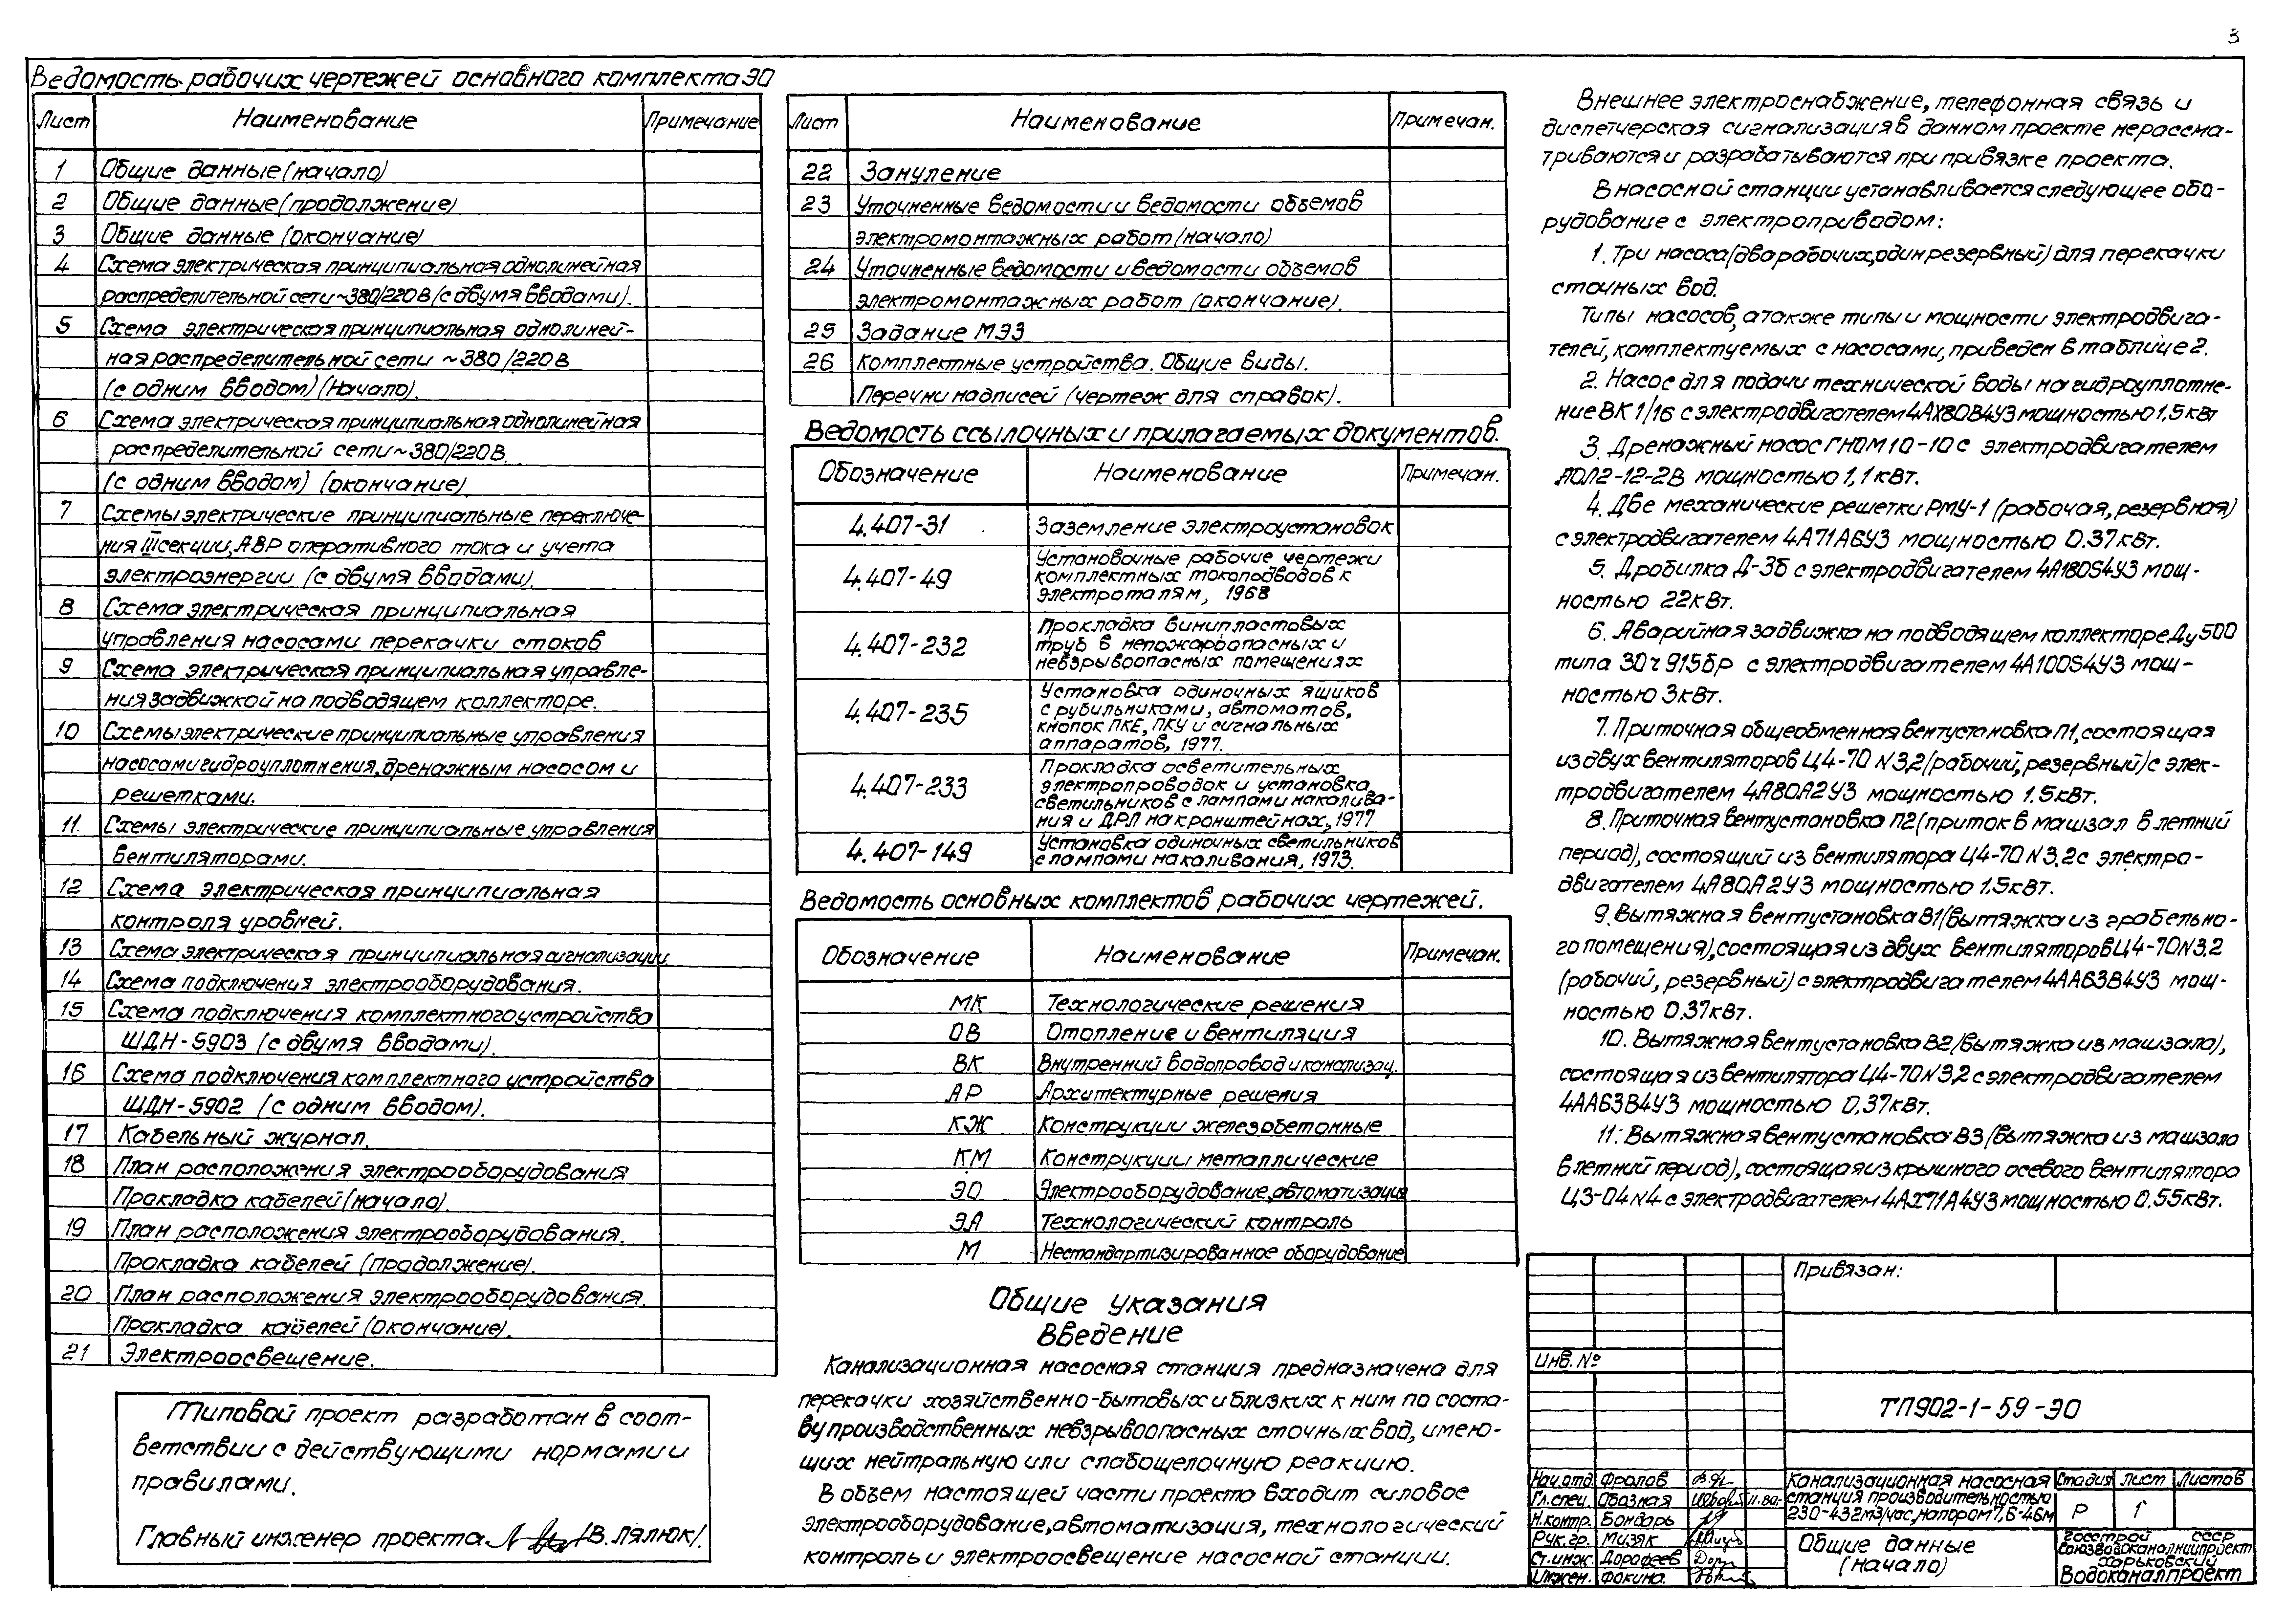 3
Ведомость рабочих чертежей основного комплекта ЭО
Лист Наименование Примечание
1 Общие данные (начало)
2 Общие данные (продолжение)
3 Общие данные (окончание)
4 Схема электрическая принципиальная однолинейная
распределительной сети ~380/220В (с двумя вводами).
5 Схема электрическая принципиальная однолиней-
ная распределительной сети ~380/220В
(с одним вводом) (Начало).
6 Схема электрическая принципиальная однолинейная
распределительной сети ~380/220В.
(с одним вводом) (окончание)
7 Схемы электрические принципиальные переключе-
ния III секции, АВР оперативного тока и учета
электроэнергии (с двумя вводами).
8 Схема электрическая принципиальная
управления насосами перекачки стоков
9 Схема электрическая принципиальная управле-
ния задвижкой на подводящем коллекторе.
10 Схемы электрические принципиальные управления
насосами гидроуплотнения, дренажным насосом и
решетками.
11. Схемы электрические принципиальные управления
вентиляторами.
12 Схема электрическая принципиальная
контроля уровней.
13 Схема электрическая принципиальная сигнализации.
14 Схема подключения электрооборудования.
15 Схема подключения комплектного устройства
ШДН-5903 (с двумя вводами).
16 Схема подключения комплектного устройства
ШДН-5902 (с одним вводом).
17 Кабельный журнал.
18 План расположения электрооборудования
Прокладка кабелей (начало).
19 План расположения электрооборудования.
Прокладка кабелей (продолжение).
20 План расположения электрооборудования.
Прокладка кабелей (окончание).
21 Электроосвещение.
Типовой проект разработан в соот-
ветствии с действующими нормами и
правилами.
Главный инженер проекта /В. Лялюк/.
Лист Наименование Примечан.
22 Зануление
23 Уточненные ведомости и ведомости объемов
электромонтажных работ (начало)
24 Уточненные ведомости и ведомости объемов
электромонтажных работ (окончание).
25 Задание МЭЗ
26 Комплектные устройства. Общие виды.
Перечни надписей (чертеж для справок).
Ведомость ссылочных и прилагаемых документов.
Обозначение Наименование Примечан.
4.407-31 Заземление электроустановок
4.407-49 Установочные рабочие чертежи
комплектных токоподводов к
электроталям, 1968
4.407-232 Прокладка винипластовых
труб в непожароопасных и
невзрывоопасных помещениях
4.407-235 Установка одиночных ящиков
с рубильниками, автоматов,
кнопок ПКЕ, ПКУ и сигнальных
аппаратов, 1977.
4.407-233 Прокладка осветительных
электропроводок и установка
светильников с лампами накалива-
ния и ДРЛ на кронштейнах, 1977
4.407-149 Установка одиночных светильников
с лампами накаливания, 1973.
Ведомость основных комплектов рабочих чертежей.
Обозначение Наименование Примечан.
МК Технологические решения
ОВ Отопление и вентиляция
ВК Внутренний водопровод и канализац.
АР Архитектурные решения
КЖ Конструкции железобетонные
КМ Конструкции металлические
ЭО Электрооборудование, автоматизация
ЭА Технологический контроль
М Нестандартизированное оборудование
Общие указания
Введение
Канализационная насосная станция предназначена для
перекачки хозяйственно-бытовых и близких к ним по соста-
ву производственных невзрывоопасных сточных вод, имею-
щих нейтральную или слабощелочную реакцию.
В объем настоящей части проекта входит силовое
электрооборудование, автоматизация, технологический
контроль и электроосвещение насосной станции.
Внешнее электроснабжение, телефонная связь и
диспетчерская сигнализация в данном проекте не рассма-
триваются и разрабатываются при привязке проекта.
В насосной станции устанавливается следующее обо-
рудование с электроприводом:
1. Три насоса (два рабочих, один резервный) для перекачки
сточных вод.
Типы насосов, а также типы и мощности электродвига-
телей, комплектуемых с насосами, приведен в таблице 2.
2. Насос для подачи технической воды на гидроуплотне-
ние ВК 1/16 с электродвигателем 4АХ80В4У3 мощностью 1,5 квт
3. Дренажный насос ГНОМ 10-10 с электродвигателем
АОЛ2-12-2В мощностью 1,1 квт.
4. Две механические решетки РМУ-1 (рабочая, резервная)
с электродвигателем 4А71А6У3 мощностью 0.37 квт.
5. Дробилка Д-3б с электродвигателем 4А180S4У3 мощ-
ностью 22 кВт.
6. Аварийная задвижка на подводящем коллекторе Ду 500
типа 30ч 915бр с электродвигателем 4А100S4У3 мощ-
ностью 3 кВт.
7. Приточная общеобменная вентустановка П1, состоящая
из двух вентиляторов Ц4-70 N3,2 (рабочий, резервный) с элек-
тродвигателем 4А80А2У3 мощностью 1.5 кВт.
8. Приточная вентустановка П2 (приток в машзал в летний
период), состоящий из вентилятора Ц4-70 N3,2 с электро-
двигателем 4А80А2У3 мощностью 1.5 кВт.
9. Вытяжная вентустановка В1 (вытяжка из грабельно-
го помещения), состоящая из двух вентиляторов Ц4-70 N3.2
(рабочий, резервный) с электродвигателем 4АА63В4У3 мощ-
ностью 0.37 кВт.
10. Вытяжная вентустановка В2 (вытяжка из машзала),
состоящая из вентилятора Ц4-70 N3,2 с электродвигателем
4АА63В4У3 мощностью 0,37 кВт.
11. Вытяжная вентустановка В3 (вытяжка из машзала
в летний период), состоящая из крышного осевого вентилятора
Ц3-04 N4 с электродвигателем 4АХ71А4У3 мощностью 0.55 кВт.
Привязан:
Инв. №
ТП902-1-59-ЭО
Нач.отд. Фролов
Гл.спец. Обозная 11.80.
Н.контр. Бондарь
Рук.гр. Мизяк
Ст.инж. Дорофеев
Инжен. Фокина
Канализационная насосная
станция производительностью
230-432м3/час, напором 7,6-46м
Стадия Лист Листов
Р 1
Общие данные
(начало)
госстрой ссср
союзводоканалниипроект
харьковский
Водоканалпроект